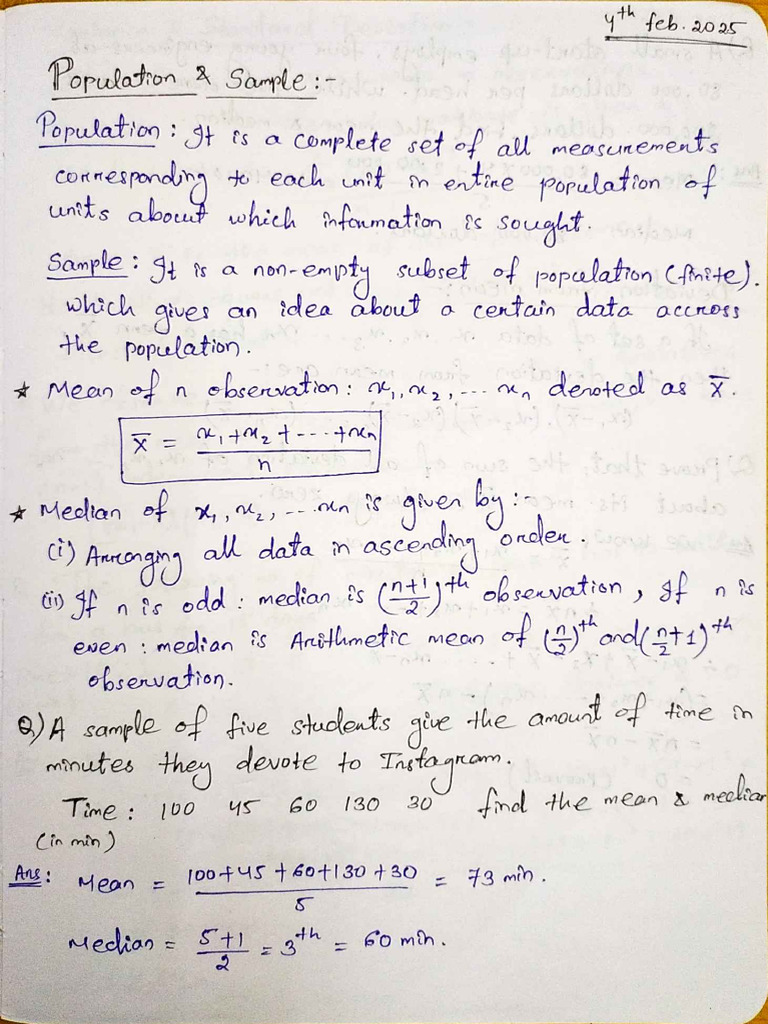 4th feb. 2025
Population & Sample :-
Population : It is a complete set of all measurements
corresponding to each unit in entire population of
units about which information is sought.
Sample : It is a non-empty subset of population (finite).
which gives an idea about a certain data accross
the population.
* Mean of n observation : x₁, x₂, ... xₙ denoted as x̄.
x̄ = (x₁ + x₂ + ... + xₙ) / n
* Median of x₁, x₂, ... xₙ is given by :-
(i) Arranging all data in ascending order.
(ii) If n is odd : median is ((n+1)/2)th observation, If n is
even : median is Arithmetic mean of (n/2)th and (n/2 + 1)th
observation.
Q) A sample of five students give the amount of time in
minutes they devote to Instagram.
Time : 100 45 60 130 30 find the mean & median
(in min)
Ans : Mean = (100 + 45 + 60 + 130 + 30) / 5 = 73 min.
Median = (5+1)/2 = 3th = 60 min.